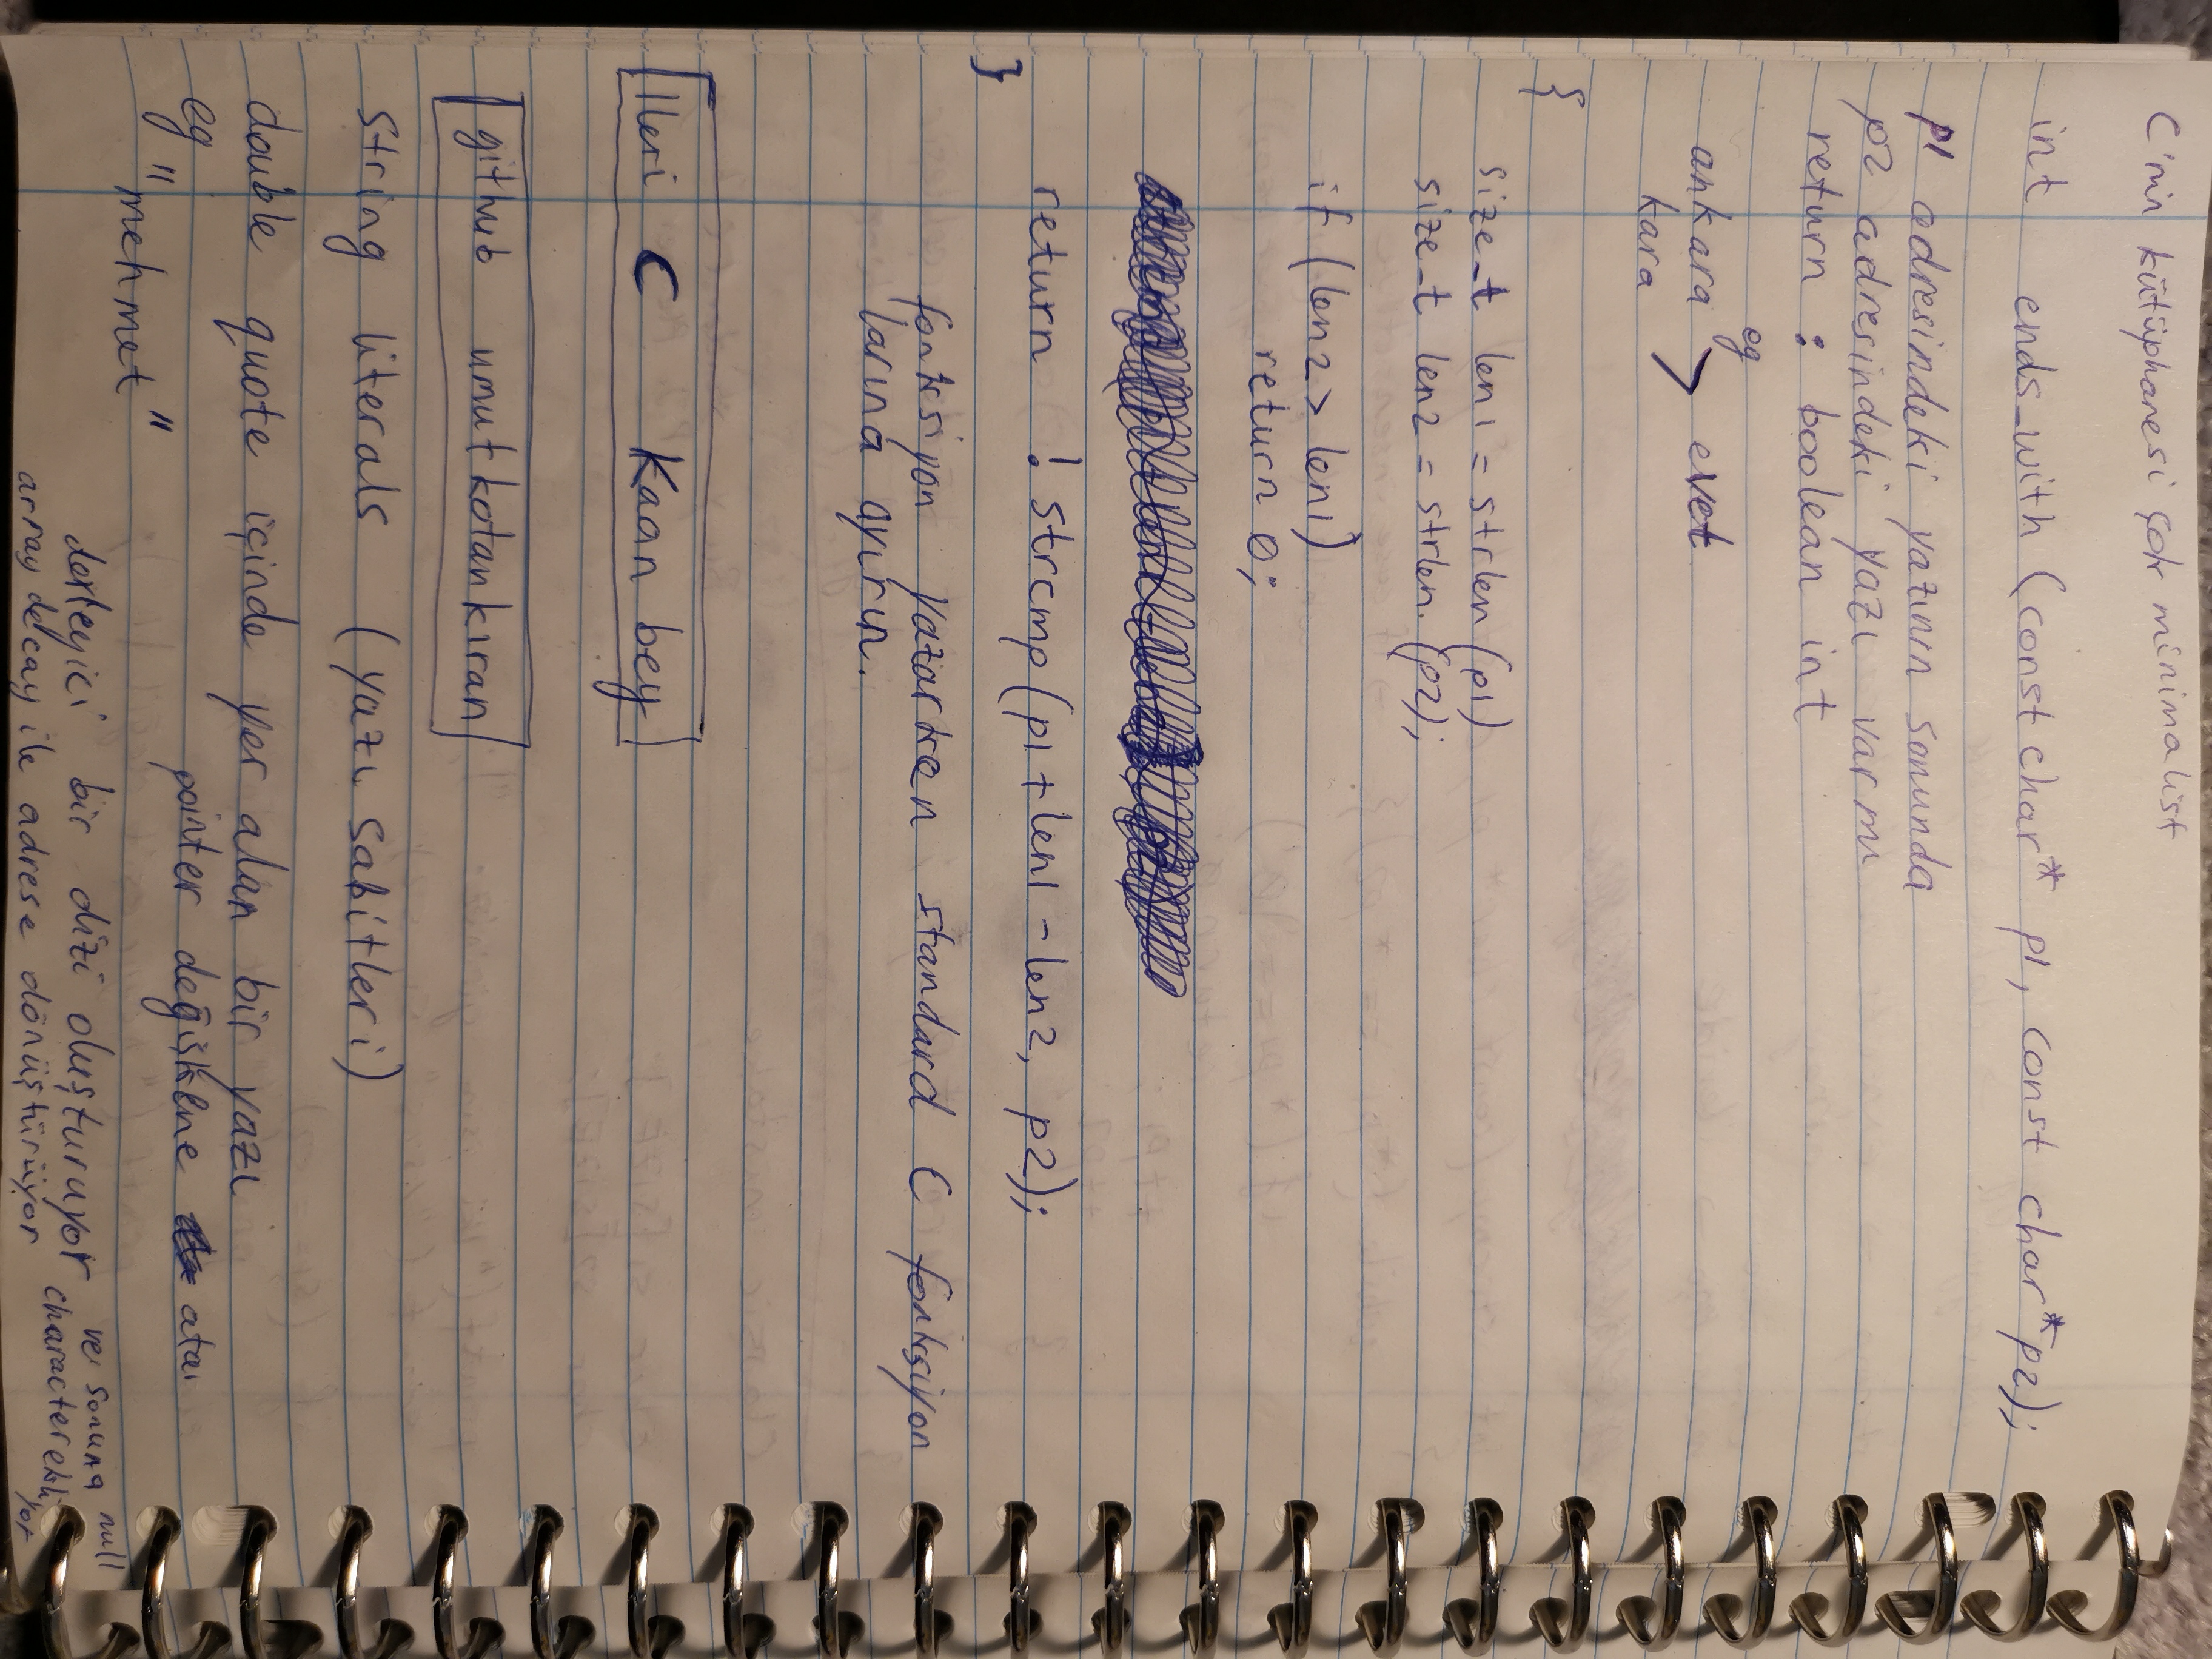 C'nin kütüphanesi çok minimalist
int ends_with (const char* p1, const char* p2);
p1 adresindeki yazının sonunda
p2 adresindeki yazı var mı
return : boolean int
eg
ankara > evet
kara
{
size_t len1 = strlen (p1)
size_t len2 = strlen. (p2);
if (len2 > len1)
return 0;
return ! strcmp (p1 + len1 - len2, p2);
}
fonksiyon yazarken standard C fonksiyon
larına ayırın.
Ileri C Kaan bey
github umutkotankıran
string literals (yazı sabitleri)
double quote içinde yer alan bir yazı
eg pointer değişkene atar
"mehmet"
derleyici bir dizi oluşturuyor ve sonuna null
character ekliyor
array decay ile adrese dönüştürüyor